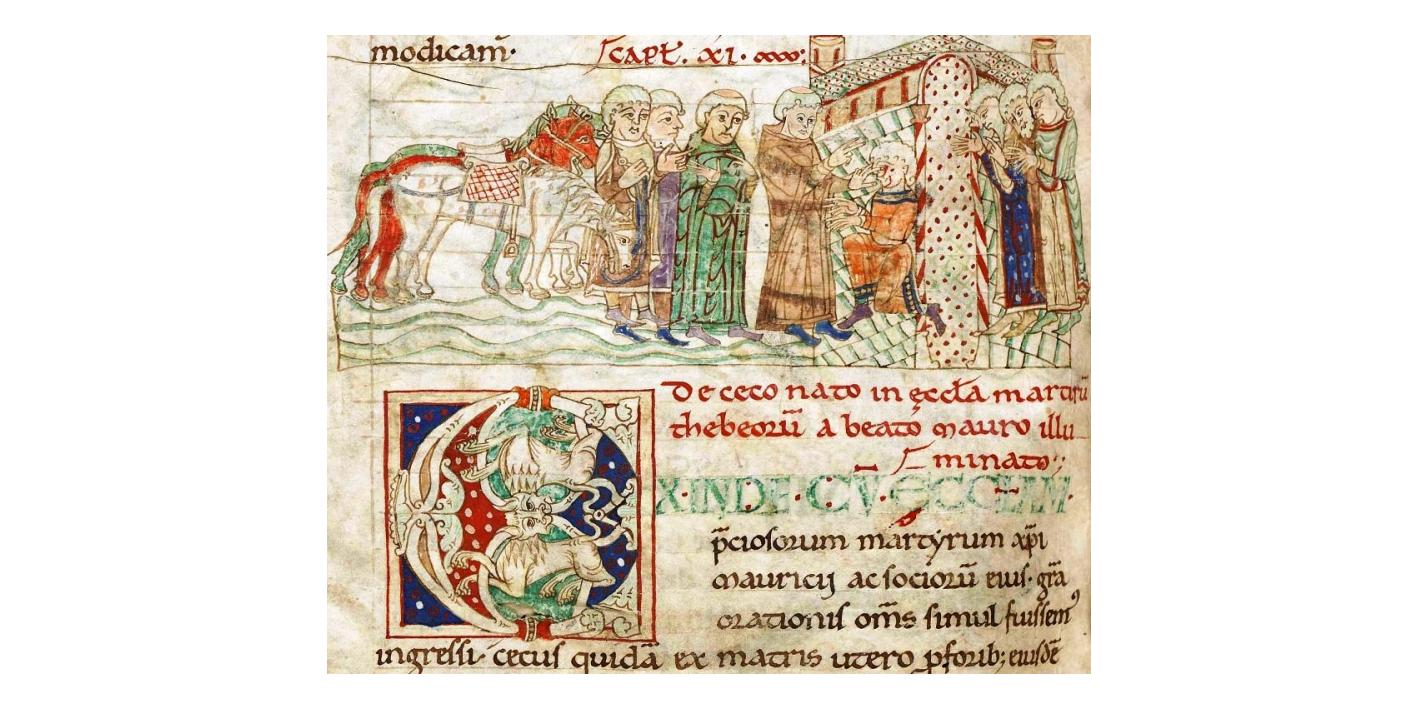 modicam· CAPŁ. XI.
De ceco nato in ęccła martirū
thebeorū a beato mauro illu
minato:;
EX·INDE·CŪ·ECCLAM·
p̄ciosorum mártyrum xp̄i
mauricij ac sociorū eius· gr̄a
orationis om̄s simul fuissem⁹
ingressi· cecus quidā ex matris utero ꝑforib; eiusdē